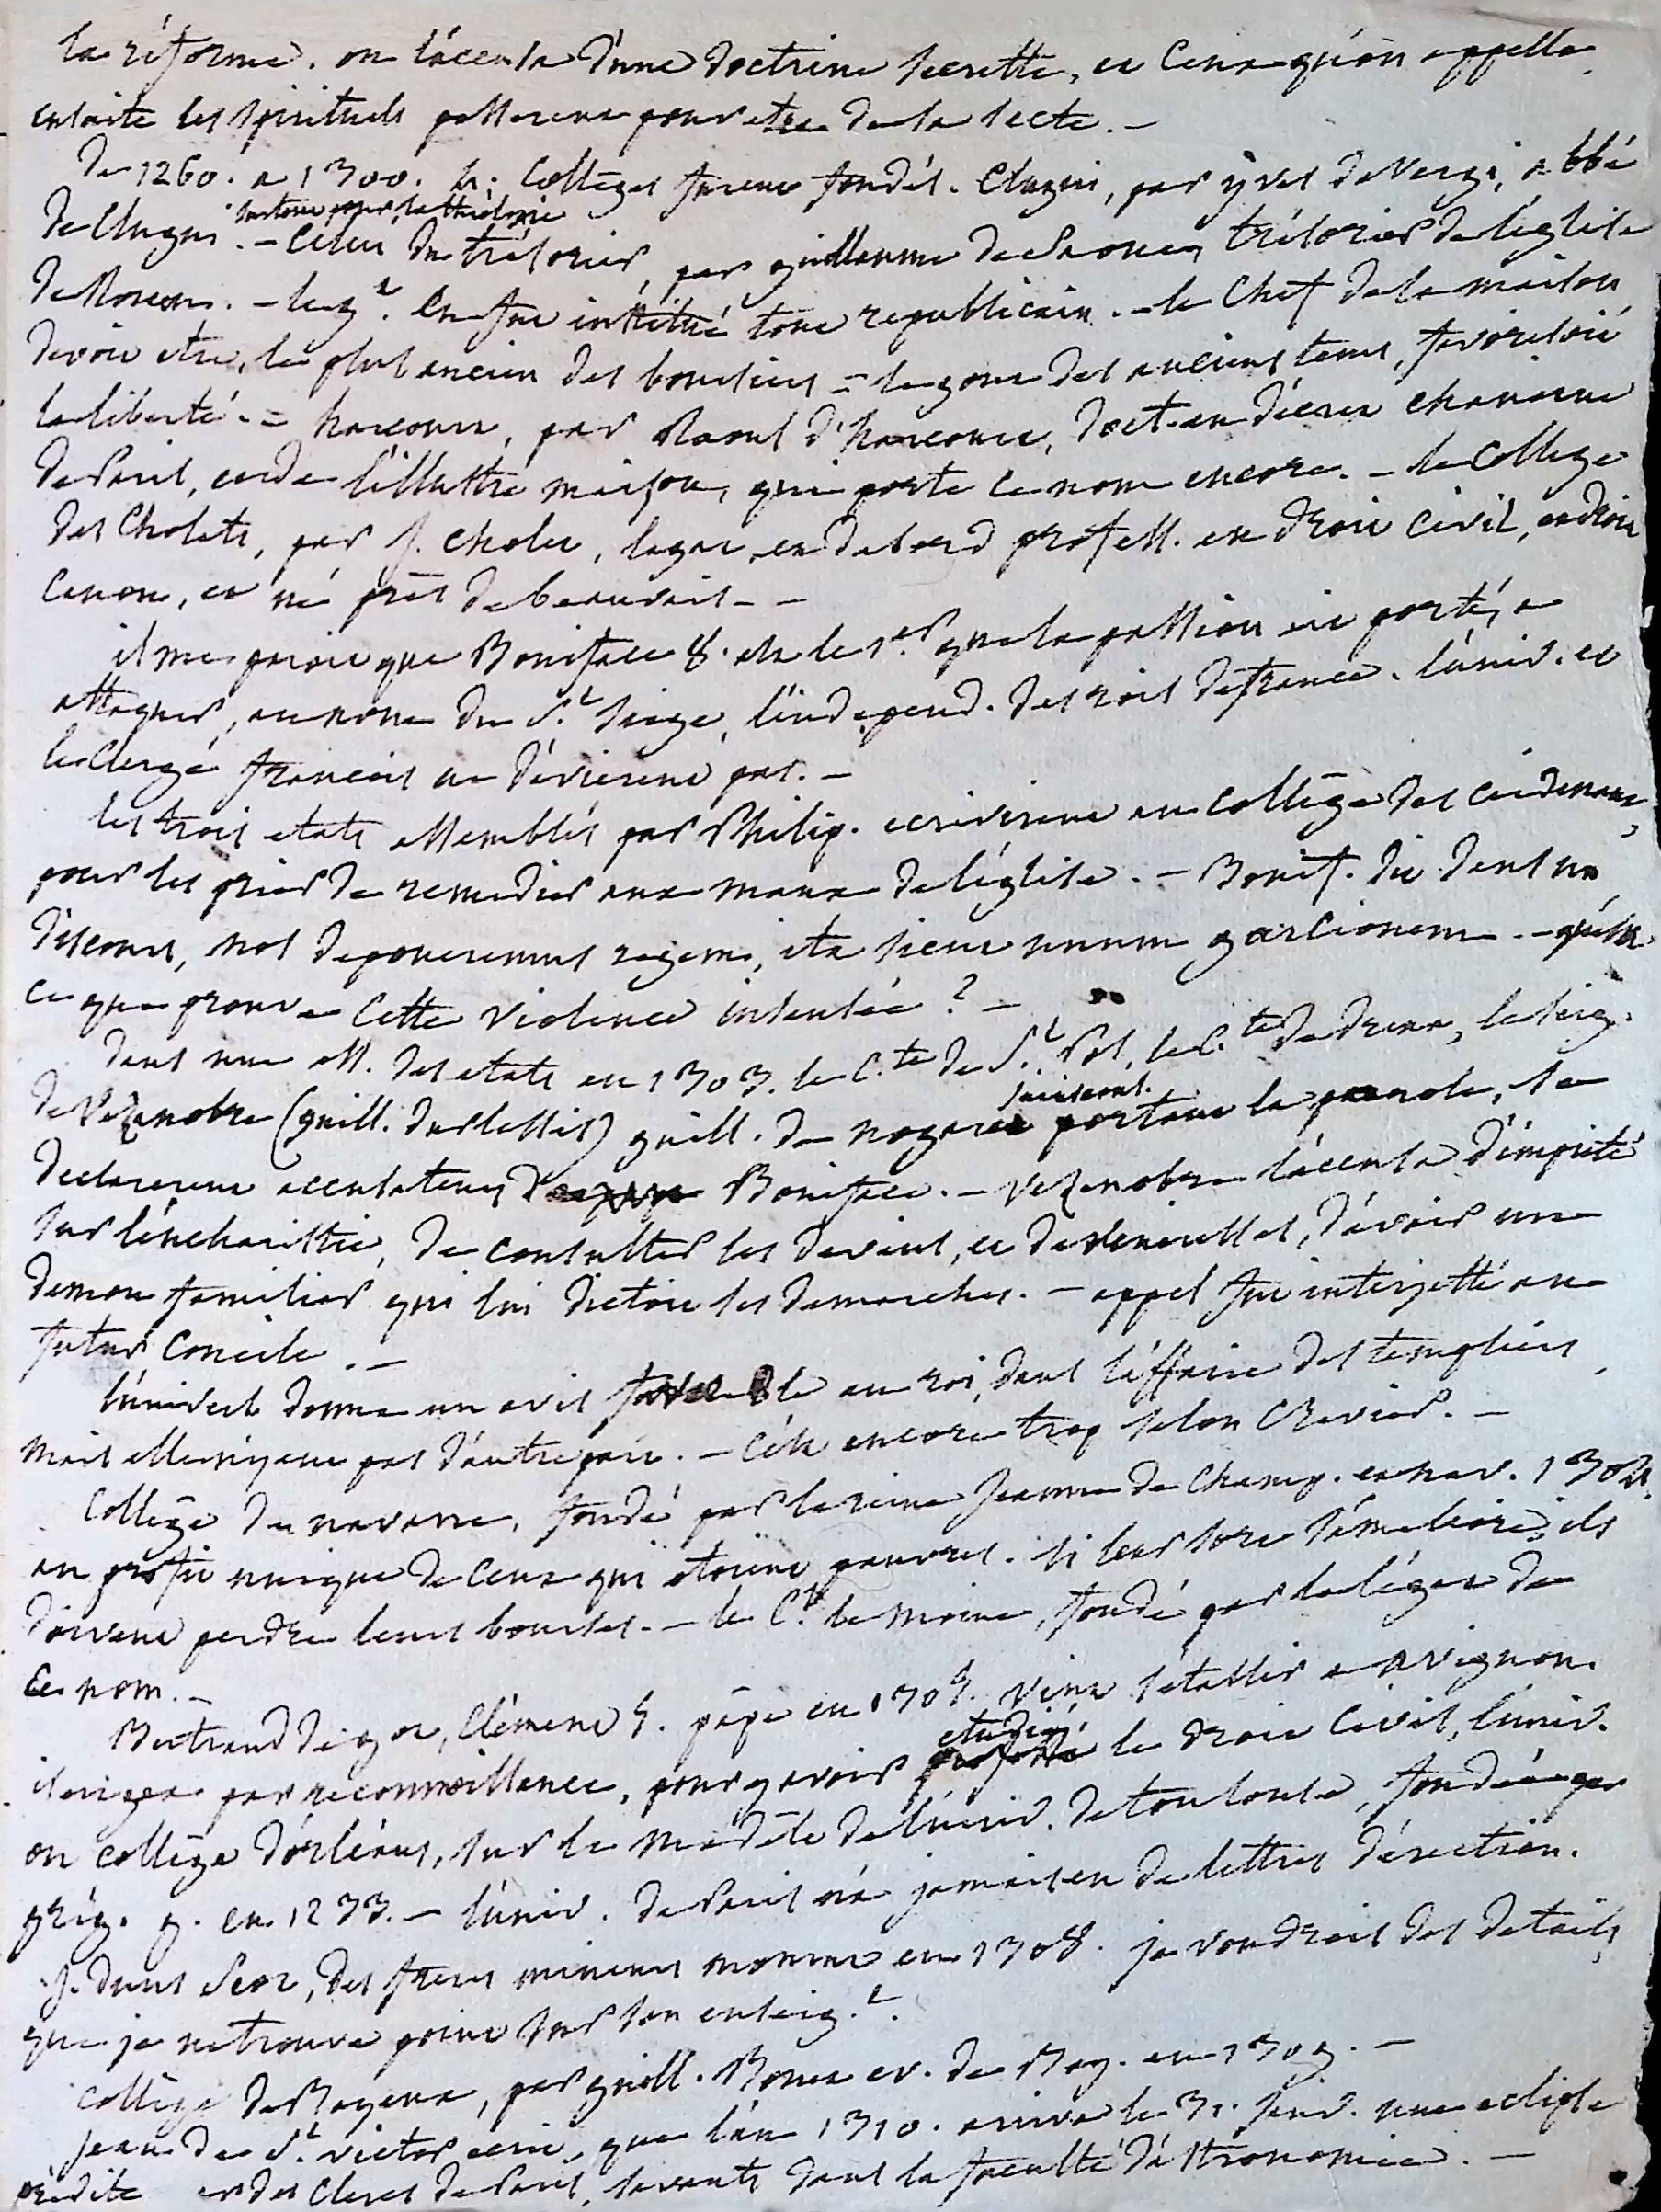 la réforme. on l'accusa d'une doctrine secrette, et ceux qu'on appella
ensuite les spirituels passerent pour etre de la secte. –
De 1260. a 1300. 4. Colleges furent fondés. Clugni, par yves de Vergi, abbé
de Clugni. surtout pour la théologie – Celui du trésorier, par guillaume de Saone, trésorier de l'eglise
de Rouen. – le 2.e en fut institué tout republicain. – le Chef de la maison
devoit etre, le plus ancien des boursiers – le gout des anciens tems, favorisoit
la liberté. – harcourt, par Raoul d'harcourt, doct. en décret chanoine
de Paris, et de l'illustre maison, qui porte ce nom encore. – le College
des Cholets, par J. Cholet, legat, et dabord profess. en droit civil, en droit
canon, et né près de beauvais – –
il me paroit que Boniface 8. est le 1.er que la passion ait porté, a
attaquer, au nom du S.t siege, l'independ. des rois de france. l'univ. et
le clergé françois ne dévierent pas. –
les trois etats assemblés par Philip. ecrivirent au college des cardinaux,
pour les prier de remedier aux maux de l'église. – Bonif. dit dans un
discours, nos deponeremus regem, ita sicut unum garcionem. – qu'est
ce que prouve cette violence insensée ? –
dans une ass. des etats en 1303. le C.te de S.t Pol, le C.te de dreux, le seig.
de Vezenobre (guill. du plessis) guill. de nogaret portant la parole, se
declarerent accusateurs de Boniface. – Vezenobre l'accusa d'impiété
sur l'eucharistie, de consulter les devins, et devineresses, d'avoir un
demon familier qui lui dictoit ses demarches. – appel fut interjetté au
futur Concile. –
l'univers. donna un avis favorable au roi, dans l'affaire des templiers,
mais elle n'y eut pas d'autre part. – C'est encore trop selon Crevier. –
College de navarre, fondé par la reine Jeanne de Champ. et nav. 1304.
au profit unique de ceux qui etoient pauvres. si leur sort s'améliore, ils
doivent perdre leurs bourses. – le C.l le moine, fondé par le légat de
ce nom. –
Bertrand de got, Clément 5. pape en 1305. vint s'etablir a Avignon.
il erigea par reconnoissance, pour y avoir etudié le droit civil, l'univ.
ou collège d'orléans, sur le modèle de l'univ. de toulouse, fondée par
grég. 9. en 1233. – l'univ. de Paris n'a jamais eu de lettres d'erection.
J. duns Scot, des freres mineurs mourut en 1308. je voudrais des details,
que je ne trouve point sur son enseig.t.
College de Bayeux, par guill. Bonet ev. de Bay. en 1309. –
Jean de S.t victor ecrit, que l'an 1310. arriva le 31. janv. une eclipse
prédite et des clercs de Paris, savants dans la faculté d'astronomie. –